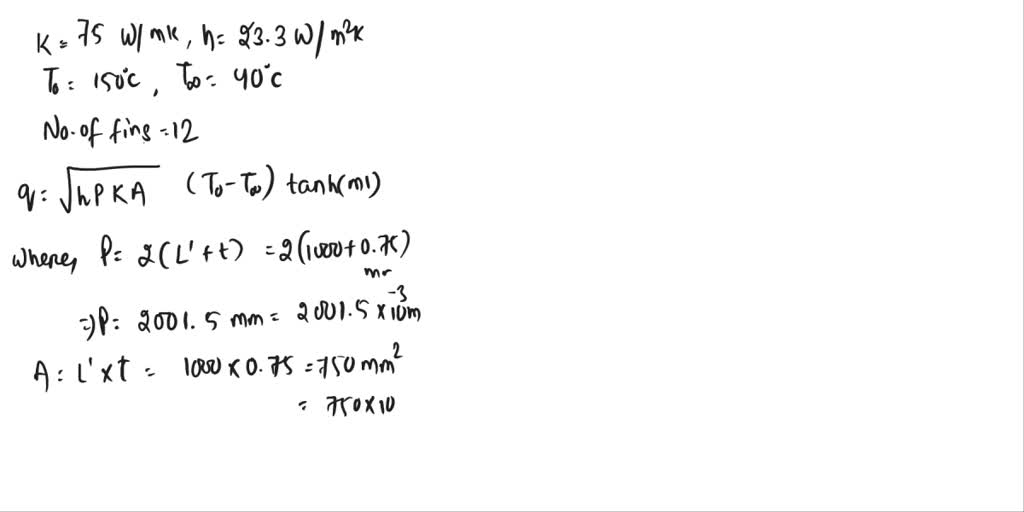 K = 75 W/mK, h = 23.3 W/m²K
T₀ = 150°C, T∞ = 40°C
No. of fins = 12
q = √hPKA (T₀ - T∞) tanh(ml)
where, P = 2(L' + t) = 2(1000 + 0.75)
mm
⇒ P = 2001.5 mm = 2001.5 × 10⁻³m
A = L' × t = 1000 × 0.75 = 750 mm²
= 750 × 10